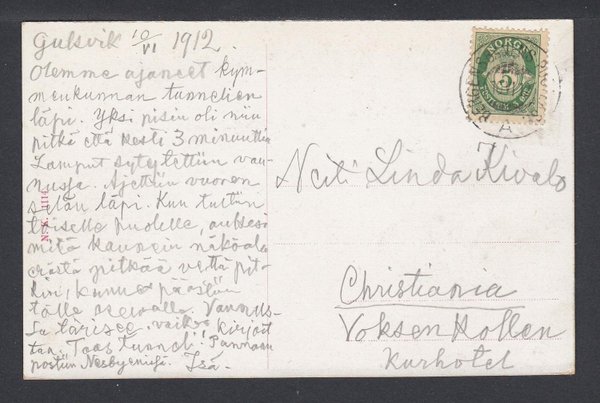 Gulsvik 10/VI 1912.
Olemme ajaneet kym-
menkunnan tunnelien
läpi. Yksi pisin oli niin
pitkä että kesti 3 minuuttia
Lamput sytytettiin vau-
nussa. Ajettiin vuoren
selän läpi. Kun tultiin
toiselle puolelle, aukesi
mitä kaunein näköala
pitkää vettä pit-
kin, kunnes päästiin
tälle asemalla. Vaunus-
sa tärisee vaikea kirjoit-
taa. Taas tunneli. Pannaan
postiin Nesbyenissä. Isä.
NORGE
5
Neiti Linda Kivalo
Christiania
Voksen Kollen
Kurhotel